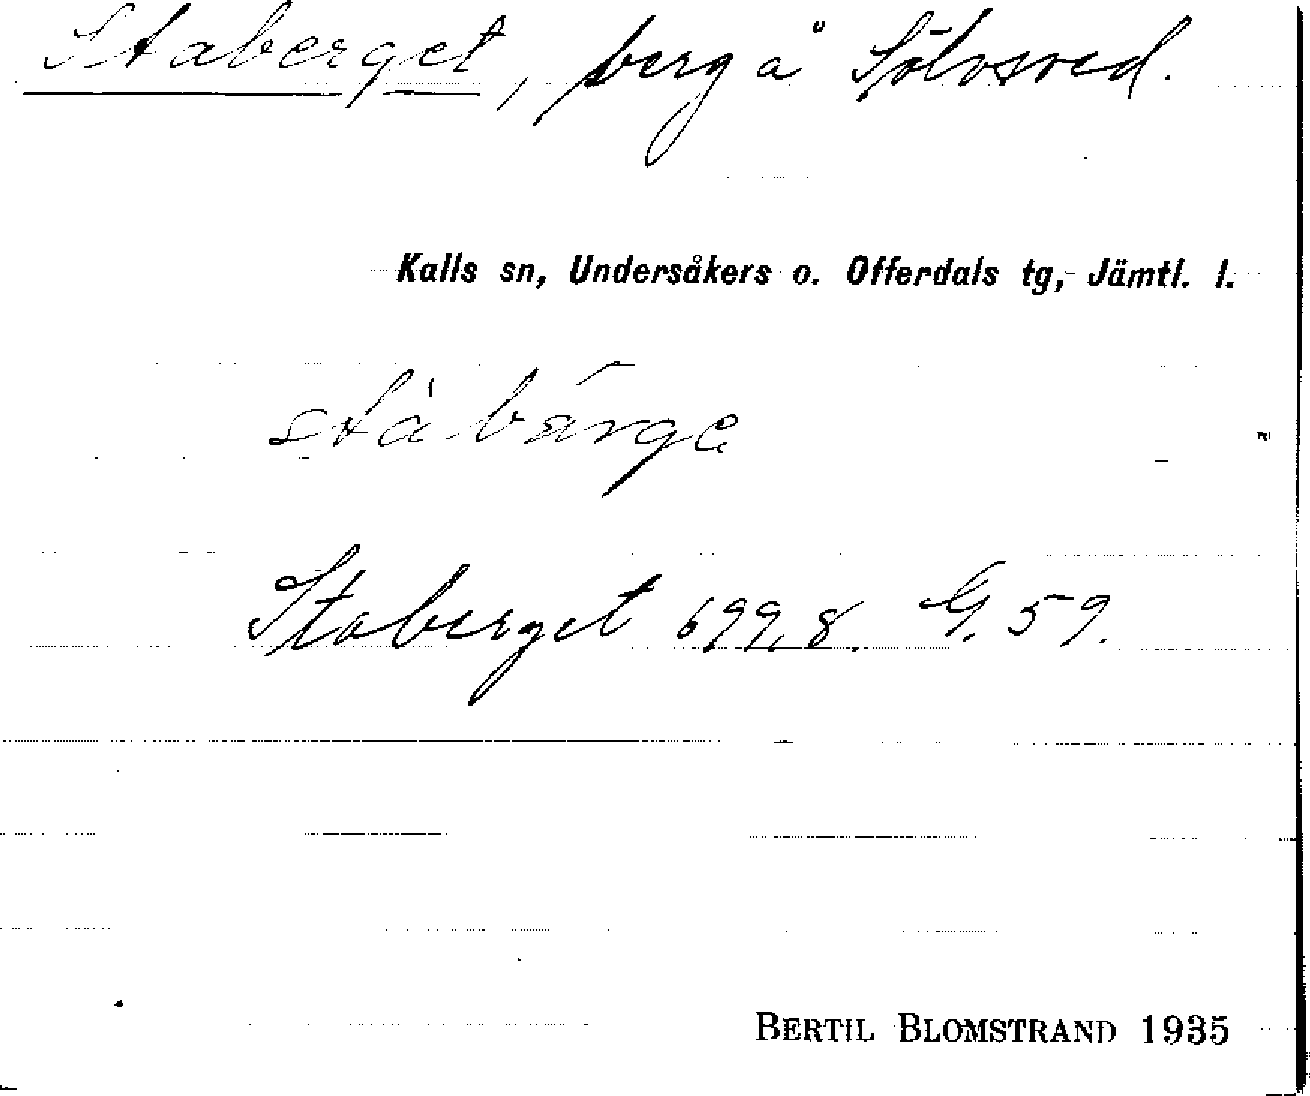 Staberget, berg å Sölvsved.
Kalls sn, Undersåkers o. Offerdals tg, Jämtl. l.
stábärge
Staberget 699,8. G. 59.
BERTIL BLOMSTRAND 1935